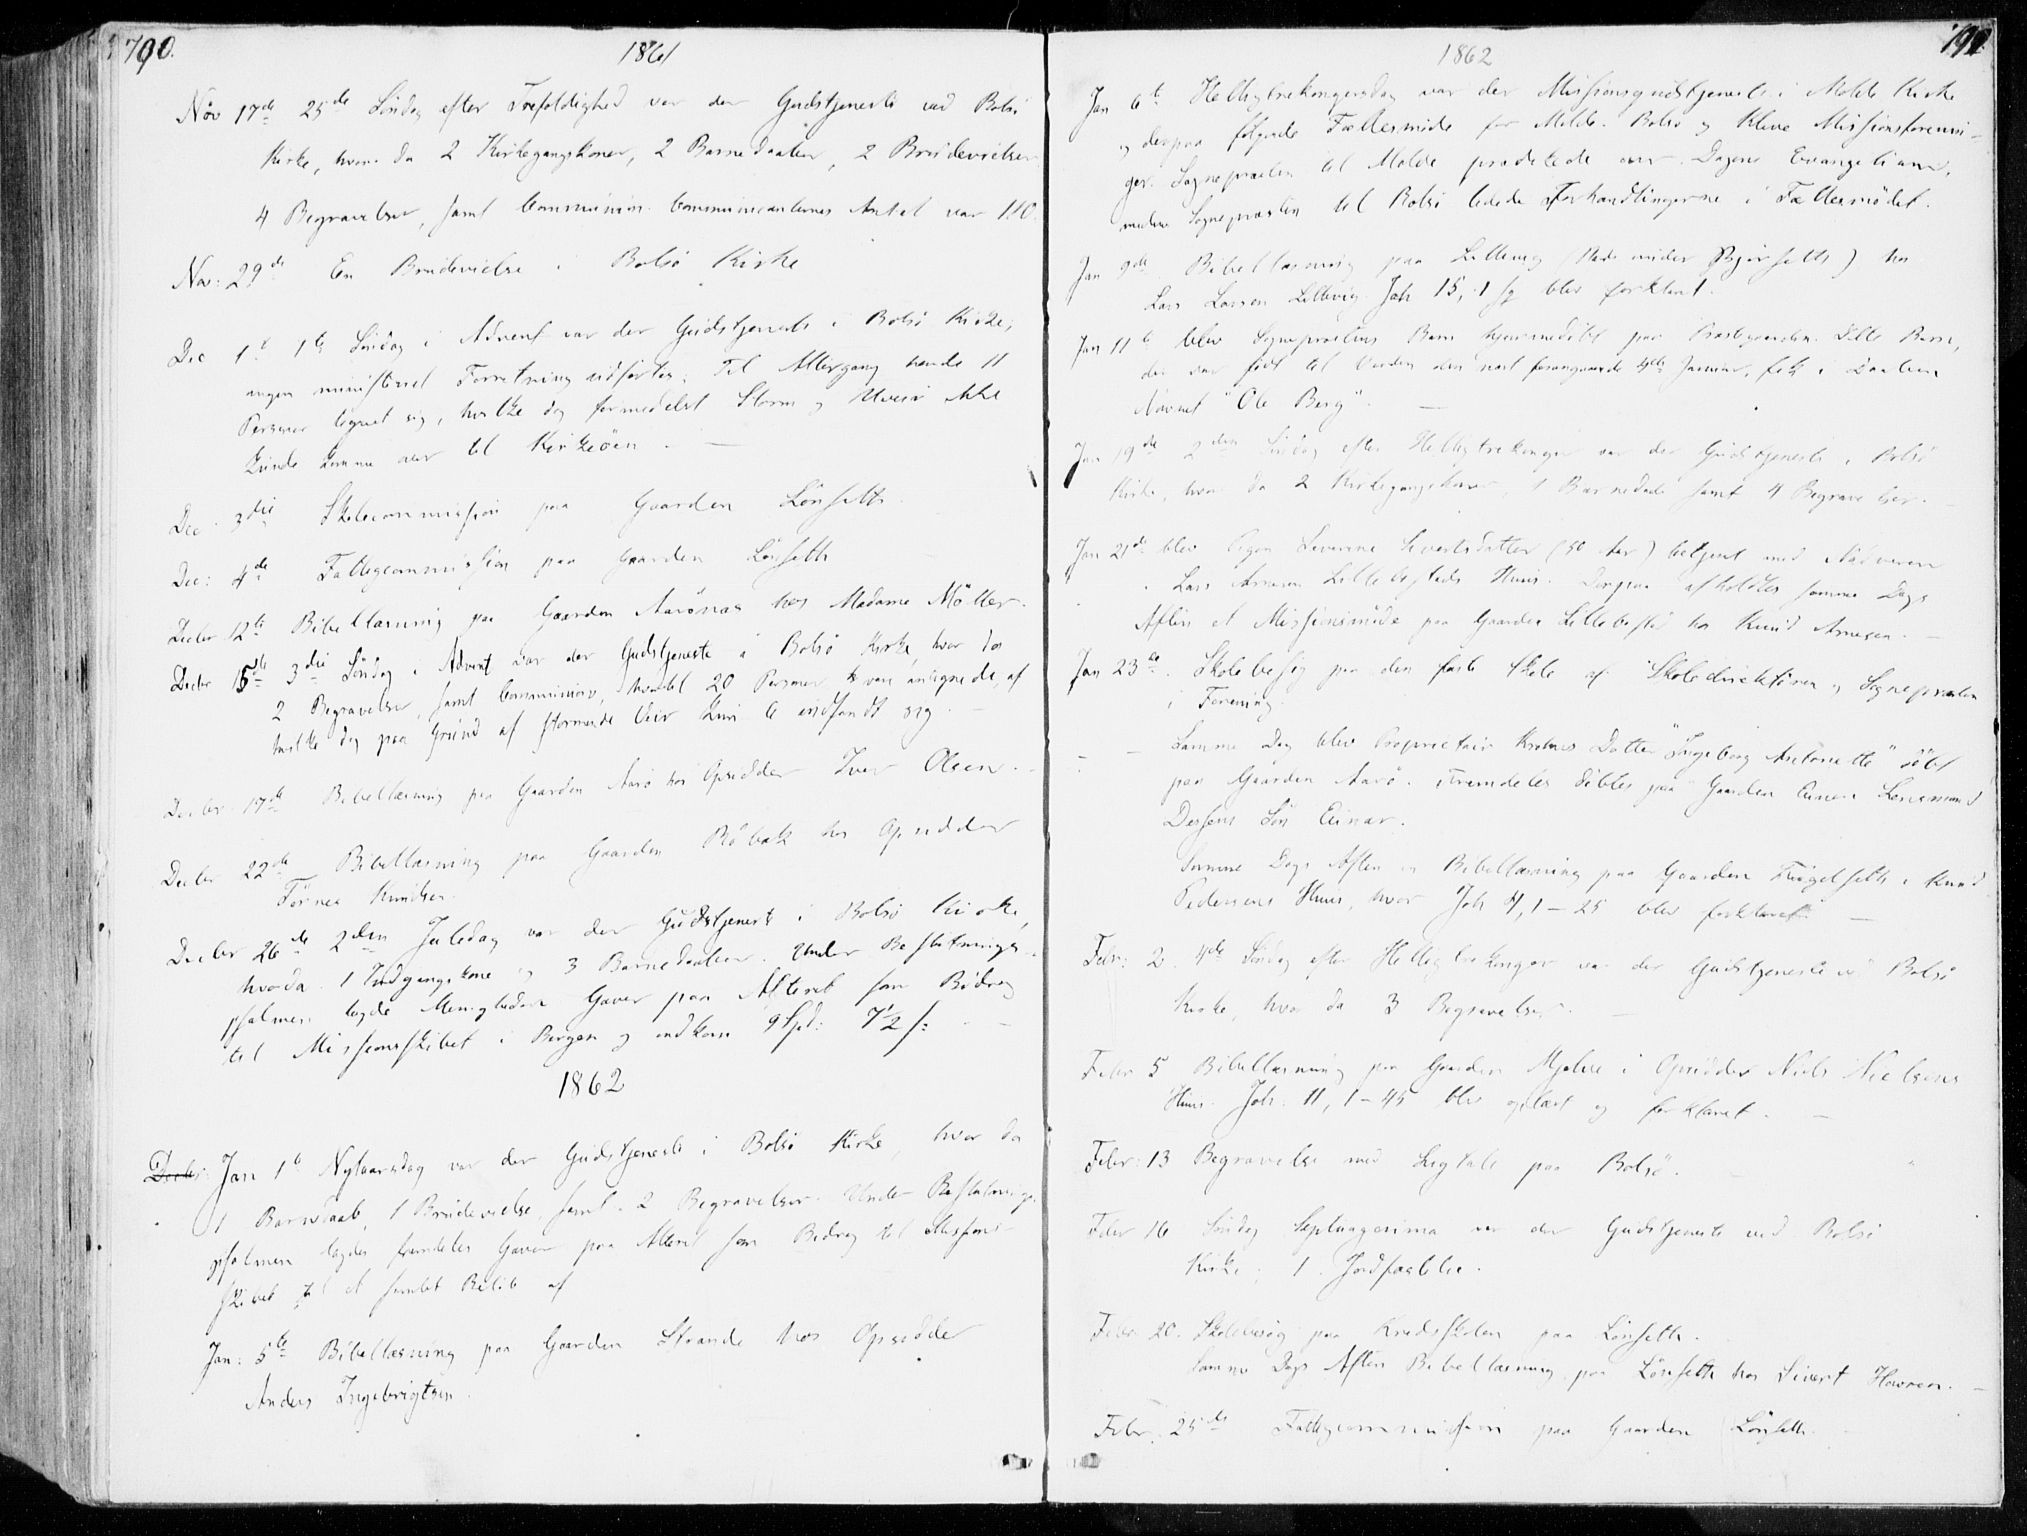 790.
1861
Nov 17de 25de Søndag efter Trefoldighed var der Gudstjeneste ved Bolsø
Kirke, hvor da 2 Kirkegangskoner, 2 Barnedaaber, 2 Brudevielser
4 Begravelser, samt Communion. Communicanternes Antal var 110.
Nov: 29de En Brudevielse i Bolsø Kirke
Dec 1te 1te Søndag i Advent var der Gudstjeneste i Bolsø Kirke;
ingen ministeriel Forretning udførtes. Til Altergang havde 11
Personer tegnet sig, hvilke dog formedelst Storm og Uveir ikke
kunde komme over til Kirkeøen. —
Dec. 3die Skolecommission paa Gaarden Lønseth.
Dec: 4de Fattigcommission paa Gaarden Lønseth
Decbr 12te Bibellæsning paa Gaarden Aarønæs hos Madame Möller.
Decbr 15de 3die Søndag i Advent var der Gudstjeneste i Bolsø Kirke, hvor da
2 Begravelser, samt Communion, hvortil 20 Personer vare antegnede, af
hvilke dog paa Grund af stormende Veir kun 6 indfandt sig. —
Decbr. 17de Bibellæsning paa Gaarden Aarø hos Opsidder Iver Olsen. —
Decbr 22de Bibellæsning paa Gaarden Røbæk hos Opsidder
Tørnes Knudsen.
Decbr 26de 2den Juledag var der Gudstjeneste i Bolsø Kirke,
hvor da 1 Indgangskone og 3 Barnedaaber. Under Beslutnings-
psalmen lagde Menigheden Gaver paa Alteret som Bidrag
til Missionsskibet i Bergen og indkom 9 Spd: 7½ s: —
1862
Decbr: Jan 1te Nytaarsdag var der Gudstjeneste i Bolsø Kirke, hvor da
1 Barnedaab, 1 Brudevielse, samt 2 Begravelser. Under Beslutnings-
psalmen lagdes fremdeles Gaver paa Alteret som Bidrag til Missions-
skibet til et samlet Beløb af
Jan: 5te Bibellæsning paa Gaarden Strande hos Opsidder
Anders Ingebrigtsen.
1862
Jan 6te Helligtrekongersdag var der Missionsgudstjeneste i Molde Kirke
og derpaa følgende Fællesmøde for Molde. Bolsø og Kleve Missionsforenin-
ger. Sognepræsten til Molde prædikede over Dagens Evangelium,
medens Sognepræsten til Bolsø ledede Forhandlingerne i Fællesmødet.
Jan 9de Bibellæsning paa Lillevig (Plads under Bjørseth) hos
Lars Larsen Lillevig. Joh 15, 1 fg blev forklaret.
Jan 11te blev Sognepræstens Barn hjemmedøbt paa Præstegaarden. Dette Barn,
der var født til Verden den næst foregaaende 4de Januar, fik i Daaben
Navnet "Ole Berg". —
Jan 19de 2den Søndag efter Helligtrekonger var der Gudstjeneste i Bolsø
Kirke, hvor da 2 Kirkegangskoner 1 Barnedaab samt 4 Begravelser. —
Jan 21de blev Pigen Severine Sivertsdatter (50 Aar) betjent med Nadveren
i Lars Arnesen Lillebostads Huus. Derpaa afholdtes samme Dags
Aften et Missionsmøde paa Gaarden Lillebostad hos Knud Arnesen. —
Jan 23de. Skolebesøg paa den faste Skole af Skoledirektören og Sognepræsten
i Forening.
— Samme Dag blev Proprietair Krohns Datter "Ingeborg Antonette" döbt
paa Gaarden Aarø. Fremdeles döbtes paa Gaarden Lensmand
Søn Einar.
Samme Dags Aften Bibellæsning paa Gaarden Fuglseth i Knud
Pedersens Huus, hvor Joh 4, 1–25 blev forklaret. —
Febr: 2 4de Søndag efter Helligtrekonger var der Gudstjeneste ved Bolsø
Kirke, hvor da 3 Begravelser. —
Febr 5 Bibellæsning paa Gaarden Mjelve i Opsidder Niels Nielsens
Huus. Joh: 11, 1–45 blev oplæst og forklaret. —
Febr: 13 Begravelse med Ligtale paa Bolsø. —
Febr 16 Søndag Septuagesima var der Gudstjeneste ved Bolsø
Kirke; 1 Jordfæstelse.
Febr. 20. Skolebesøg paa Kredsskolen paa Lønseth.
Samme Dags Aften Bibellæsning paa Lönseth hos Sivert —
Febr. 25de Fattigcommission paa Gaarden Lönseth. —